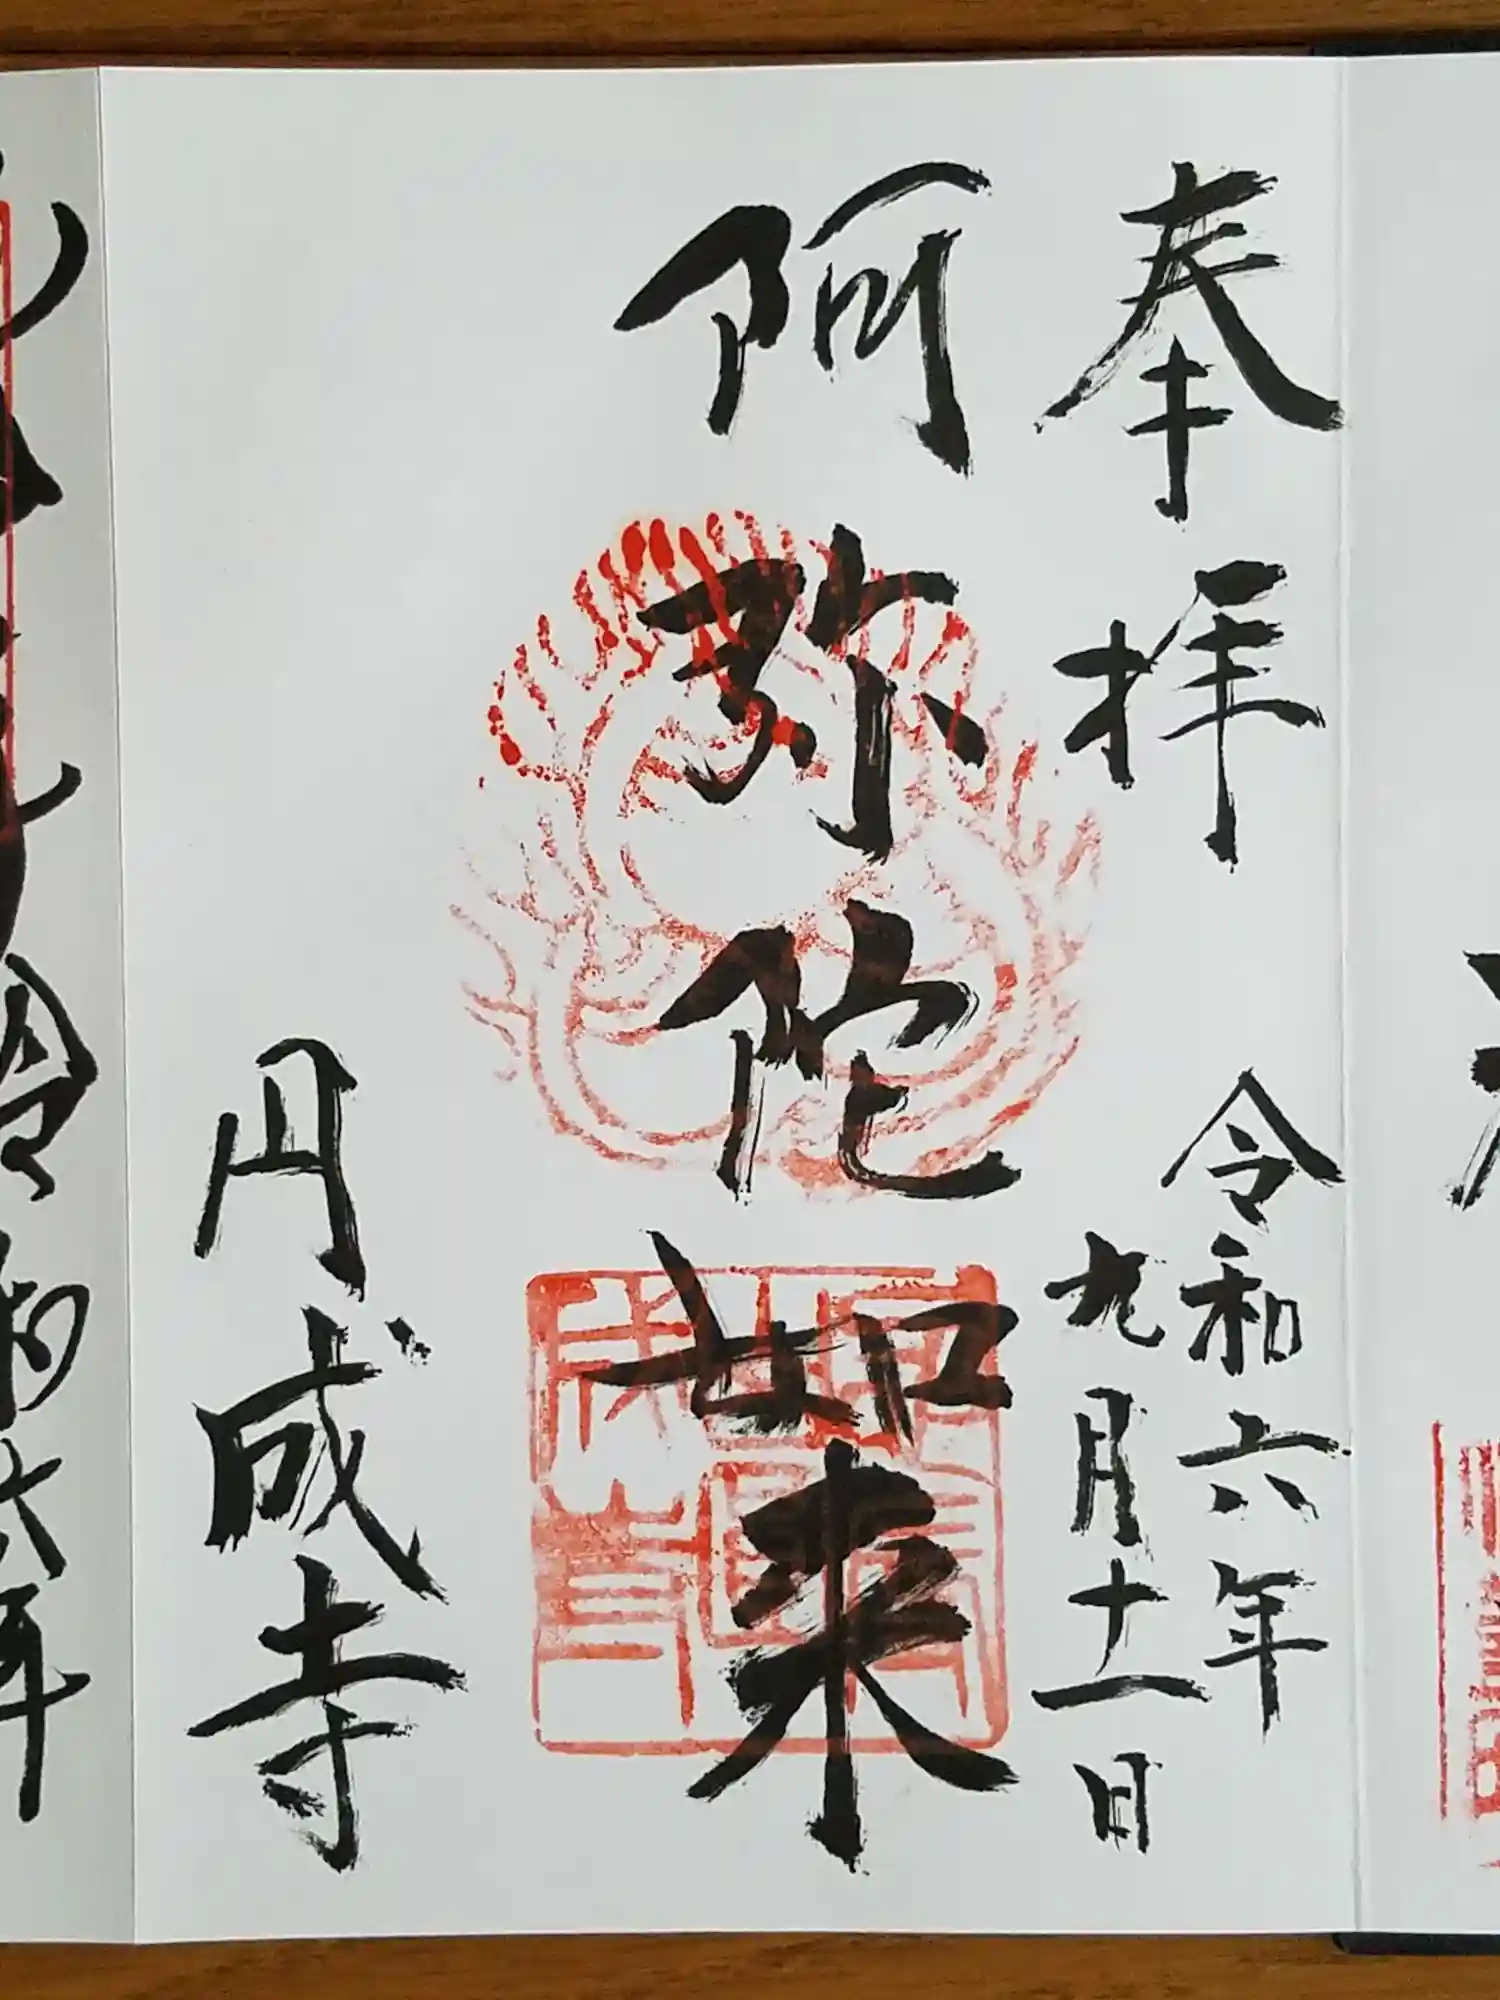 奉拝
令和六年
九月十一日
阿弥陀如来
円成寺